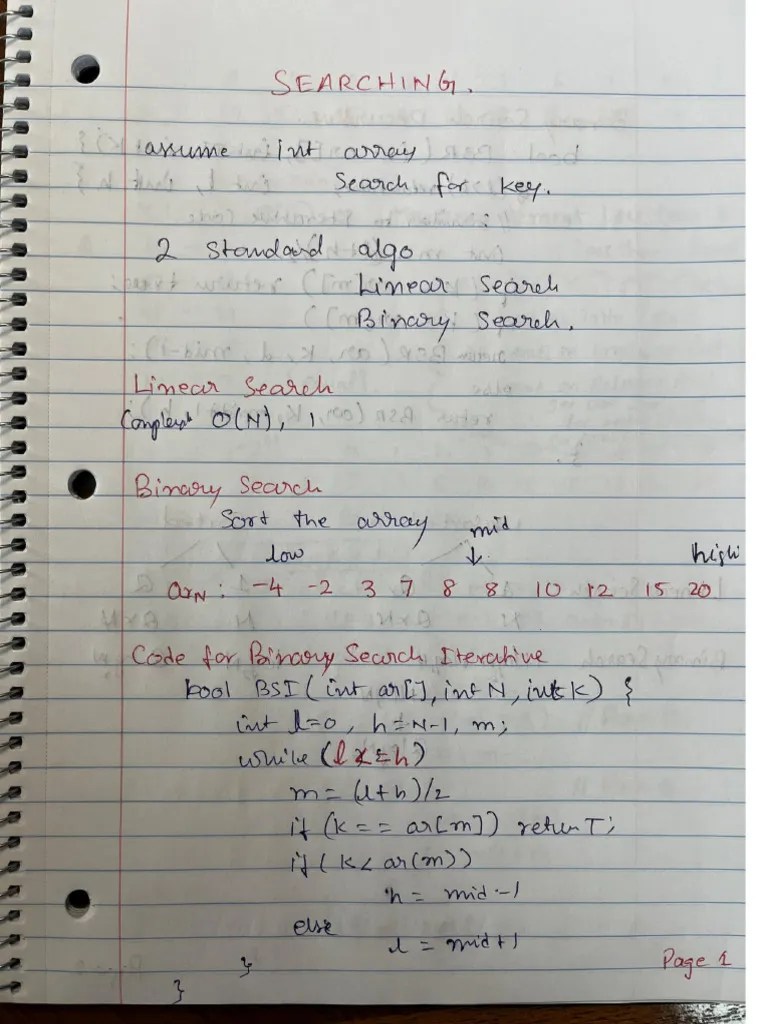 SEARCHING.
assume int array
Search for key.
2 Standard algo
Linear Search
Binary Search.
Linear Search
O(N), 1
Binary Search
Sort the array
mid
low ↓ high
arN : -4 -2 3 7 8 8 10 12 15 20
Code for Binary Search Iterative
bool BSI( int ar[], int N, int K) {
int l=0, h=N-1, m;
while (l <= h)
m = (l+h)/2
if (k == ar[m]) return T;
if ( k < ar(m))
h = mid-1
else
l = mid+1
}
}
Page 1